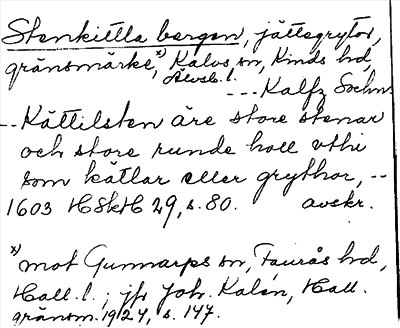 Stenkittla bergen, jättegrytor,
gränsmärke,x) Kalvs sn, Kinds hd,
Älvsb. l.
--- Kalfz Sochn
-- Kättilsten äre store stenar
och store runde holl uthi
som katlar eller grythor, --
1603 HSkH 29, s. 80. avskr.
x) mot Gunnarps sn, Faurås hd,
Hall. l.; jfr Joh. Kalén, Hall.
gränsm. 1924, s. 147.